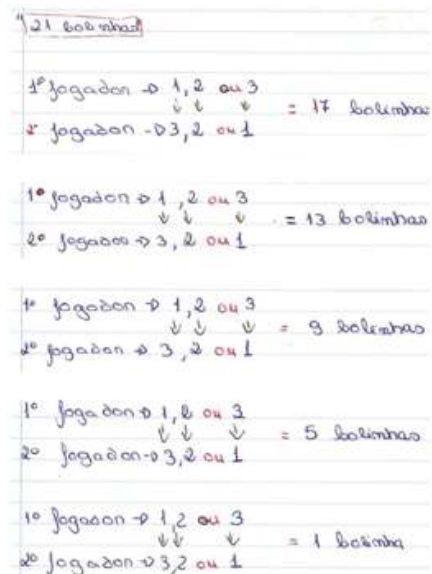 21 bolinhas
1º jogador → 1, 2 ou 3
↓ ↓ ↓ = 17 bolinhas
2º jogador → 3, 2 ou 1
1º jogador → 1, 2 ou 3
↓ ↓ ↓ = 13 bolinhas
2º jogador → 3, 2 ou 1
1º jogador → 1, 2 ou 3
↓ ↓ ↓ = 9 bolinhas
2º jogador → 3, 2 ou 1
1º jogador → 1, 2 ou 3
↓ ↓ ↓ = 5 bolinhas
2º jogador → 3, 2 ou 1
1º jogador → 1, 2 ou 3
↓ ↓ ↓ = 1 bolinha
2º jogador → 3, 2 ou 1